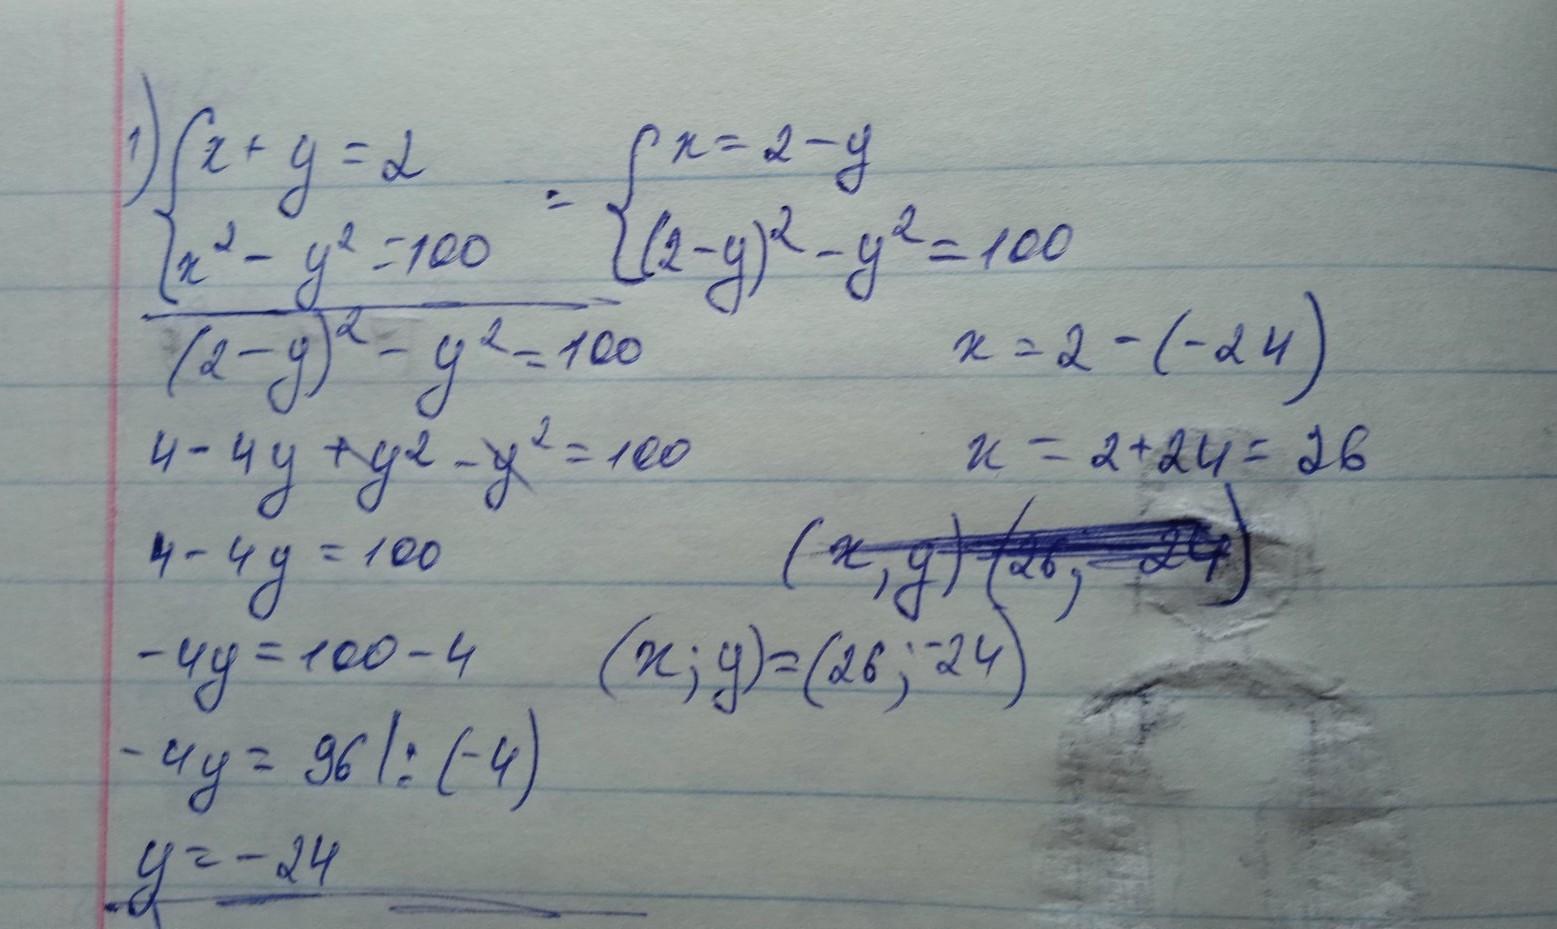 1) { x + y = 2 = { x = 2 - y
x² - y² = 100 (2-y)² - y² = 100
(2-y)² - y² = 100
4 - 4y + y² - y² = 100
4 - 4y = 100
-4y = 100 - 4
-4y = 96 |: (-4)
y = -24
x = 2 - (-24)
x = 2 + 24 = 26
(x, y) (26; -24)
(x; y) = (26; -24)